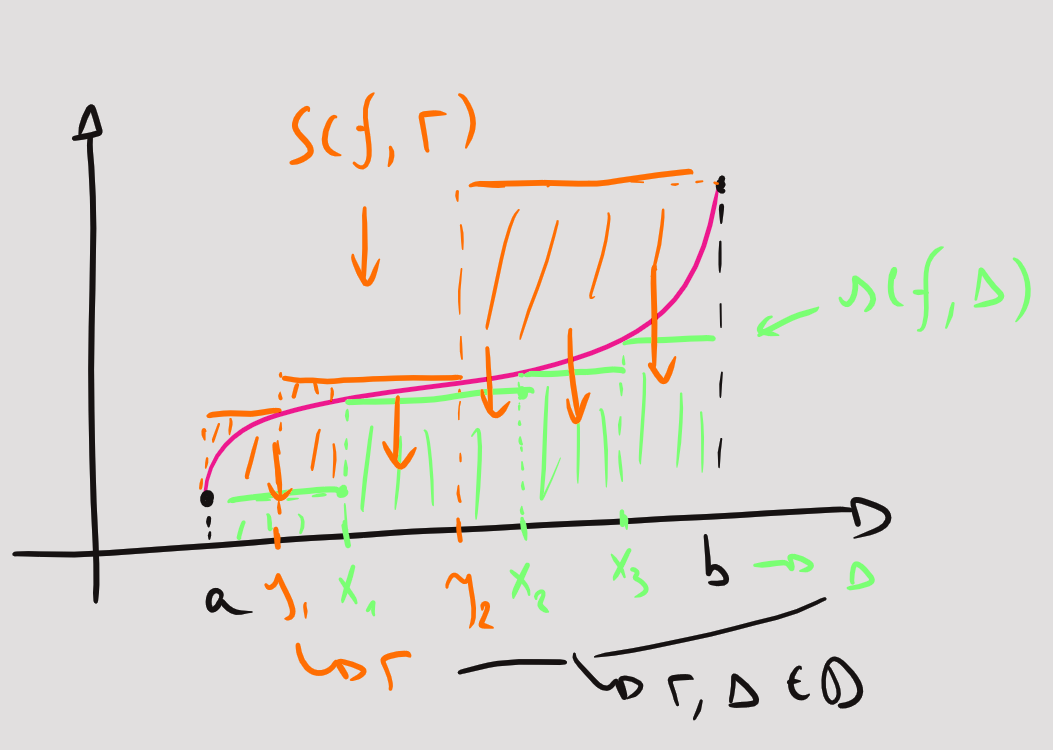 S(f, Γ)
s(f, Δ)
a y₁ x₁ y₂ x₂ x₃ b → Δ
↳ Γ
↳ Γ, Δ ∈ D